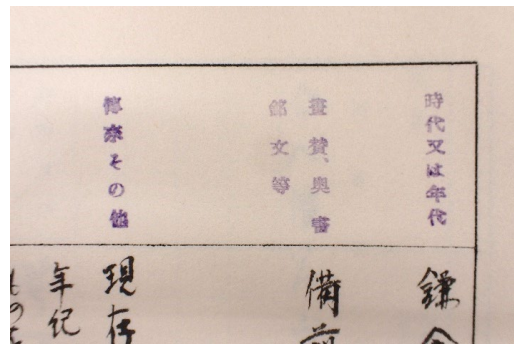 時代又は年代
畫賛、奥書
銘文等
傳来その他
鎌
備前
現存
年紀